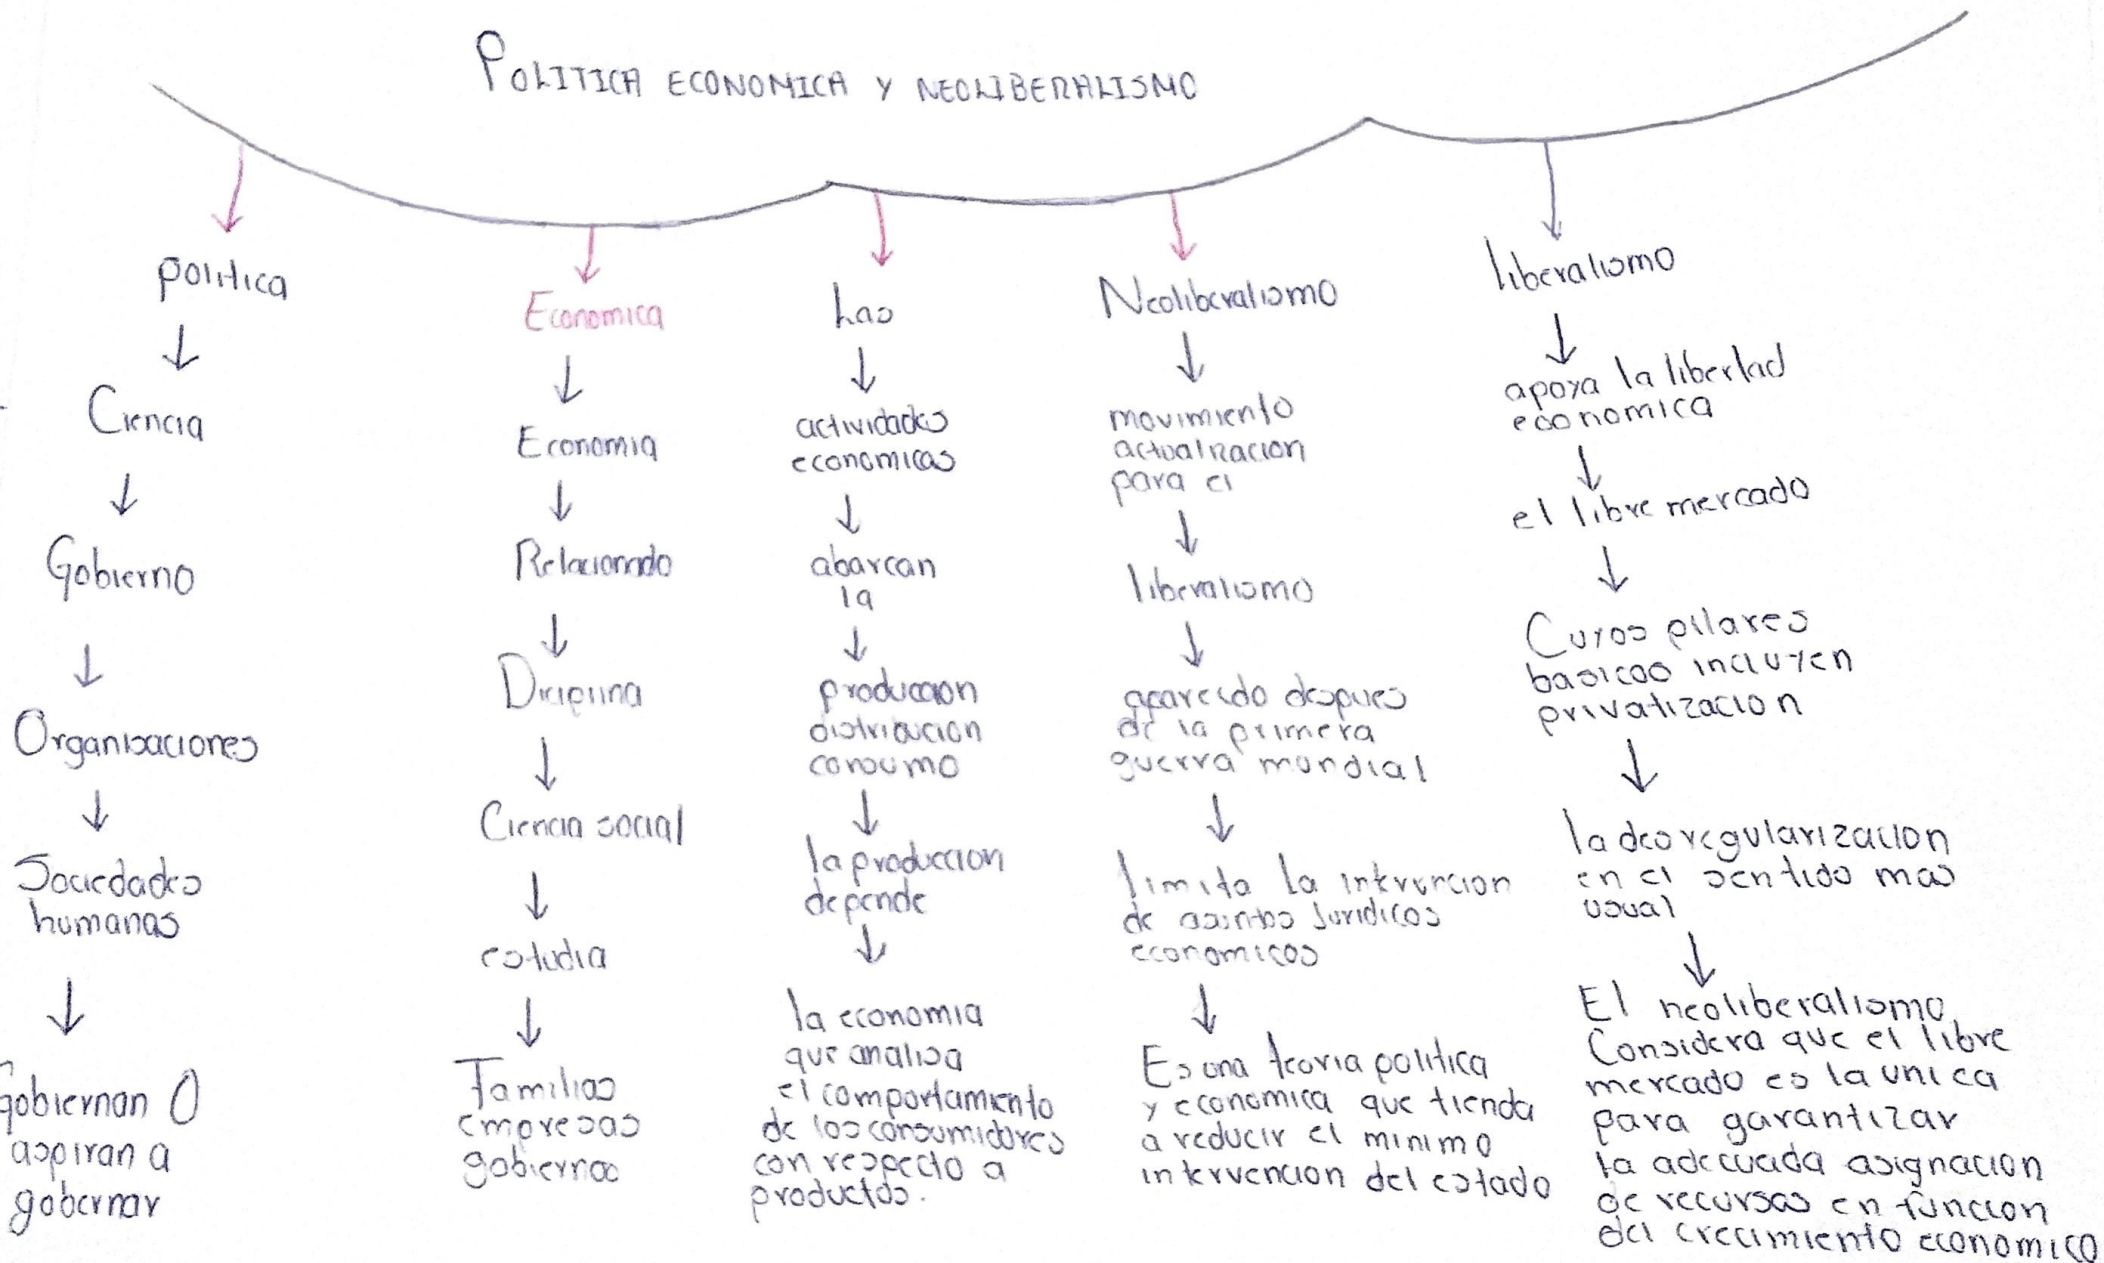 POLITICA ECONOMICA Y NEOLIBERALISMO
politica
Ciencia
Gobierno
Organisaciones
Sociedades
humanas
gobiernan O
aspiran a
gobernar
Economica
Economia
Relacionado
Diciplina
Ciencia social
estudia
Familias
empresas
gobiernos
Las
actividades
economicas
abarcan
la
produccion
distribucion
consumo
la produccion
depende
la economia
que analisa
el comportamiento
de los consumidores
con respecto a
productos.
Neoliberalismo
movimiento
actualizacion
para el
liberalismo
aparecido despues
de la primera
guerra mundial
limita la intervencion
de asuntos juridicos
economicos
Es una teoria politica
y economica que tienda
a reducir el minimo
intervencion del estado
liberalismo
apoya la libertad
economica
el libre mercado
Cuyos pilares
basicos incluyen
privatizacion
la desregularizacion
en el sentido mas
usual
El neoliberalismo
Considera que el libre
mercado es la unica
para garantizar
la adecuada asignacion
de recursas en funcion
del crecimiento economico